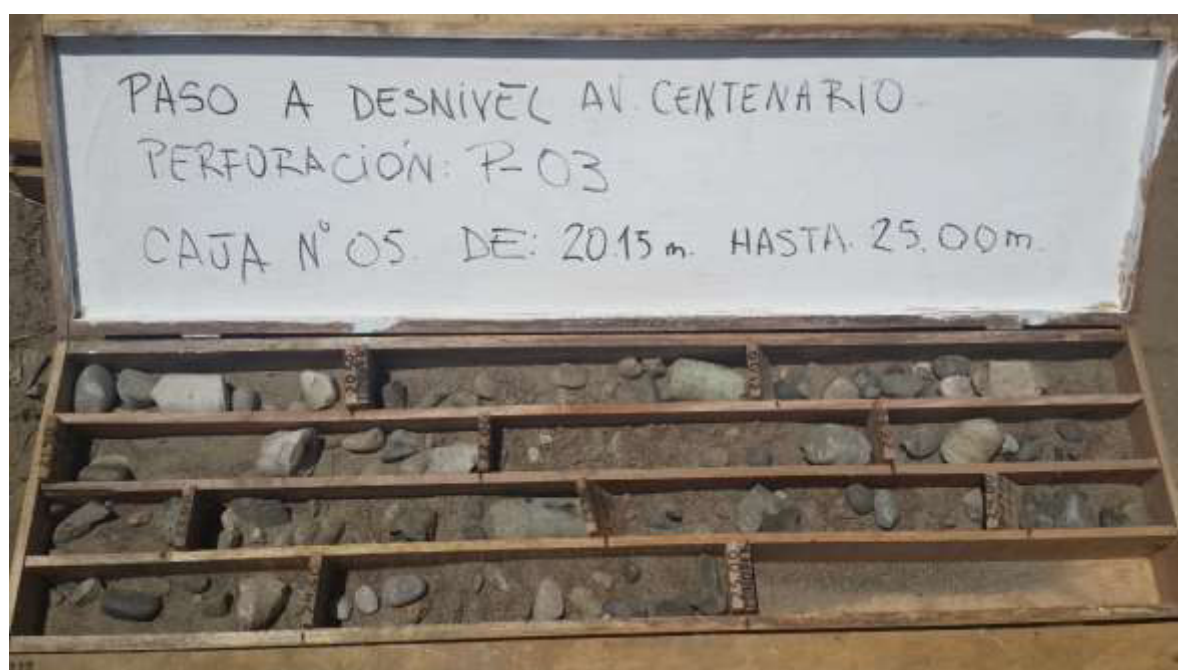 PASO A DESNIVEL AV. CENTENARIO
PERFORACIÓN: P-03
CAJA N° 05. DE: 20.15m. HASTA. 25.00m.